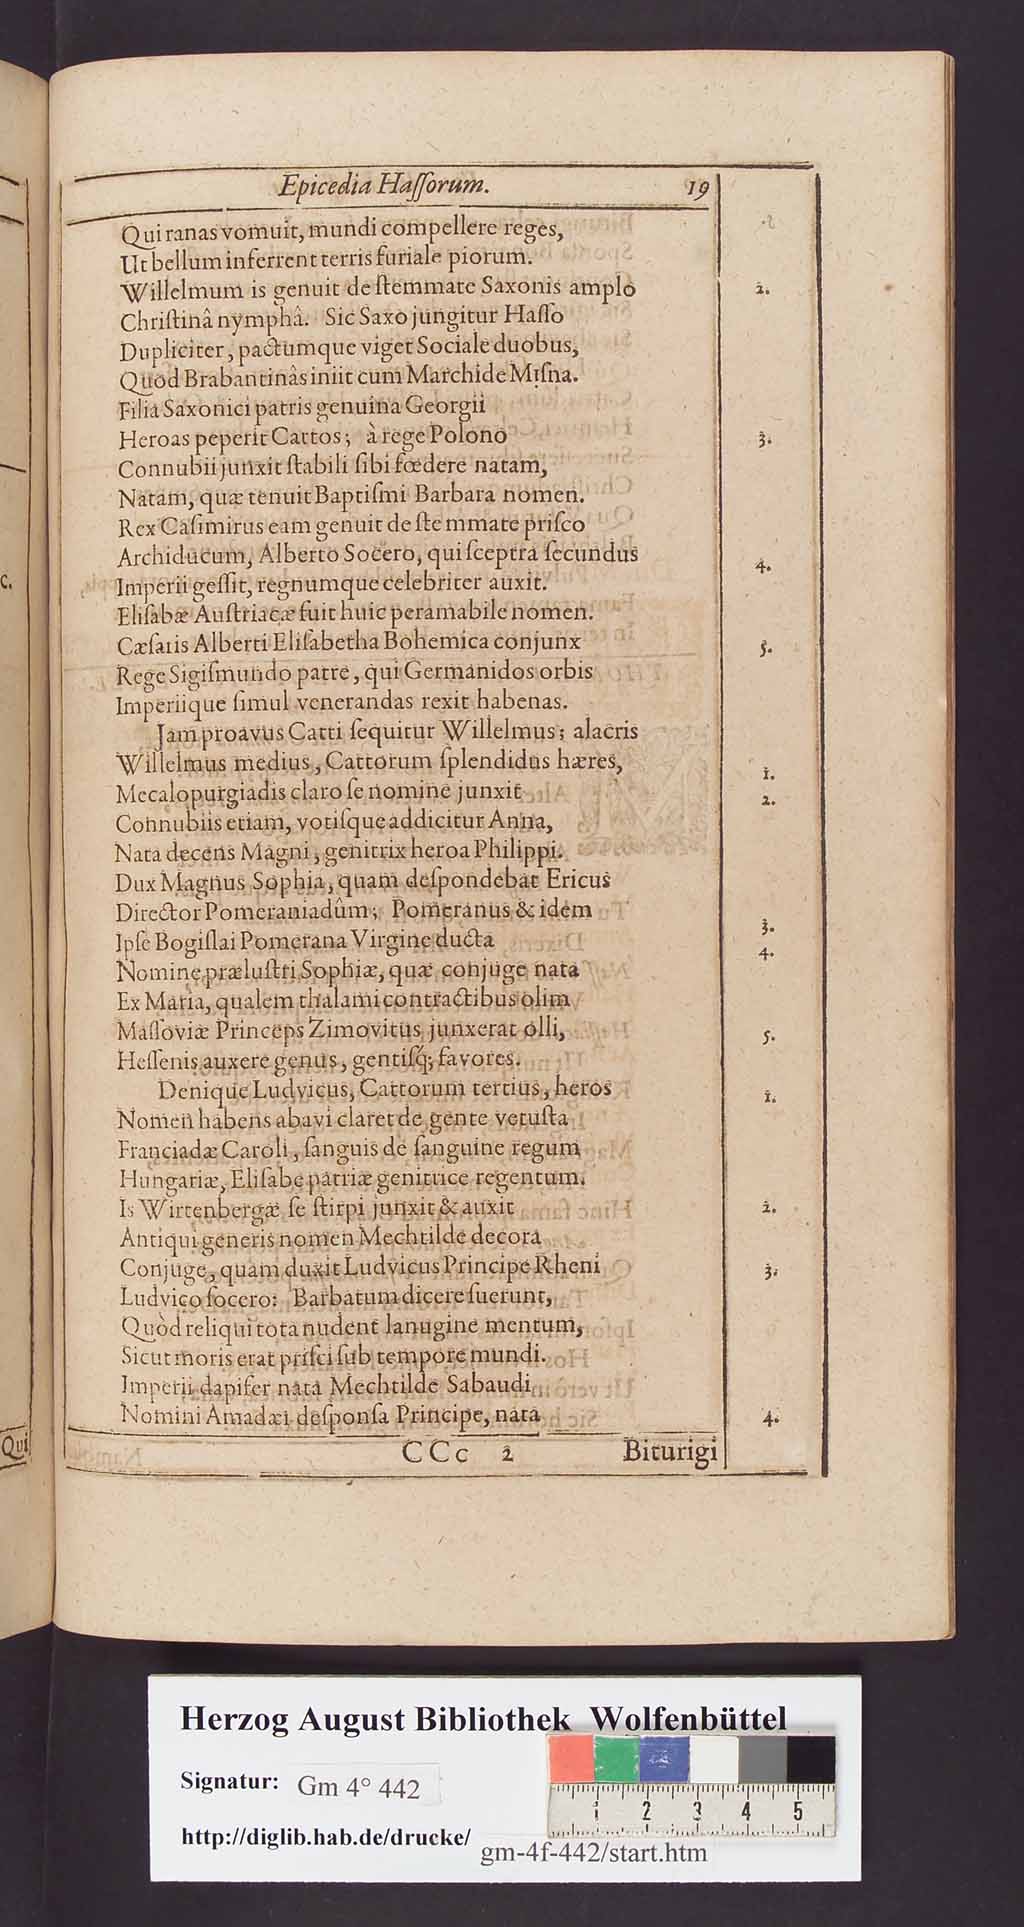 Epicedia Haſſorum. 19
Qui ranas vomuit, mundi compellere reges,
Ut bellum inferrent terris furiale piorum.
Willelmum is genuit de ſtemmate Saxonis amplo 2.
Chriſtinâ nymphâ. Sic Saxo jungitur Haſſo
Dupliciter, pactumque viget Sociale duobus,
Quòd Brabantinâs iniit cum Marchide Miſna.
Filia Saxonici patris genuina Georgii
Heroas peperit Cattos; à rege Polono 3.
Connubii junxit ſtabili ſibi fœdere natam,
Natam, quæ tenuit Baptiſmi Barbara nomen.
Rex Caſimirus eam genuit de ſtemmate priſco
Archiducum, Alberto Socero, qui ſceptra ſecundus 4.
Imperii geſſit, regnumque celebriter auxit.
Eliſabæ Auſtriacæ fuit huic peramabile nomen.
Cæſaris Alberti Eliſabetha Bohemica conjunx 5.
Rege Sigiſmundo patre, qui Germanidos orbis
Imperiique ſimul venerandas rexit habenas.
Jam proavus Catti ſequitur Willelmus; alacris
Willelmus medius, Cattorum ſplendidus hæres, 1.
Mecalopurgiadis claro ſe nomine junxit 2.
Connubiis etiam, votiſque addicitur Anna,
Nata decens Magni, genitrix heroa Philippi.
Dux Magnus Sophia, quam deſpondebat Ericus
Director Pomeraniadûm; Pomeranus & idem 3.
Ipſe Bogiſlai Pomerana Virgine ducta 4.
Nomine præluſtri Sophiæ, quæ conjuge nata
Ex Maria, qualem thalami contractibus olim
Maſſoviæ Princeps Zimovitus junxerat olli, 5.
Heſſenis auxere genus, gentiſq; favores.
Denique Ludvicus, Cattorum tertius, heros 1.
Nomen habens abavi claret de gente vetuſta
Franciadæ Caroli, ſanguis de ſanguine regum
Hungariæ, Eliſabe patriæ genitrice regentum.
Is Wirtenbergæ ſe ſtirpi junxit & auxit 2.
Antiqui generis nomen Mechtilde decora
Conjuge, quam duxit Ludvicus Principe Rheni 3.
Ludvico ſocero: Barbatum dicere ſuerunt,
Quòd reliqui tota nudent lanugine mentum,
Sicut moris erat priſci ſub tempore mundi.
Imperii dapifer nata Mechtilde Sabaudi
Nomini Amadæi deſponſa Principe, nata 4.
CCc 2 Biturigi
c.
Qui
Herzog August Bibliothek Wolfenbüttel
Signatur: Gm 4° 442
http://diglib.hab.de/drucke/ gm-4f-442/start.htm
1 2 3 4 5